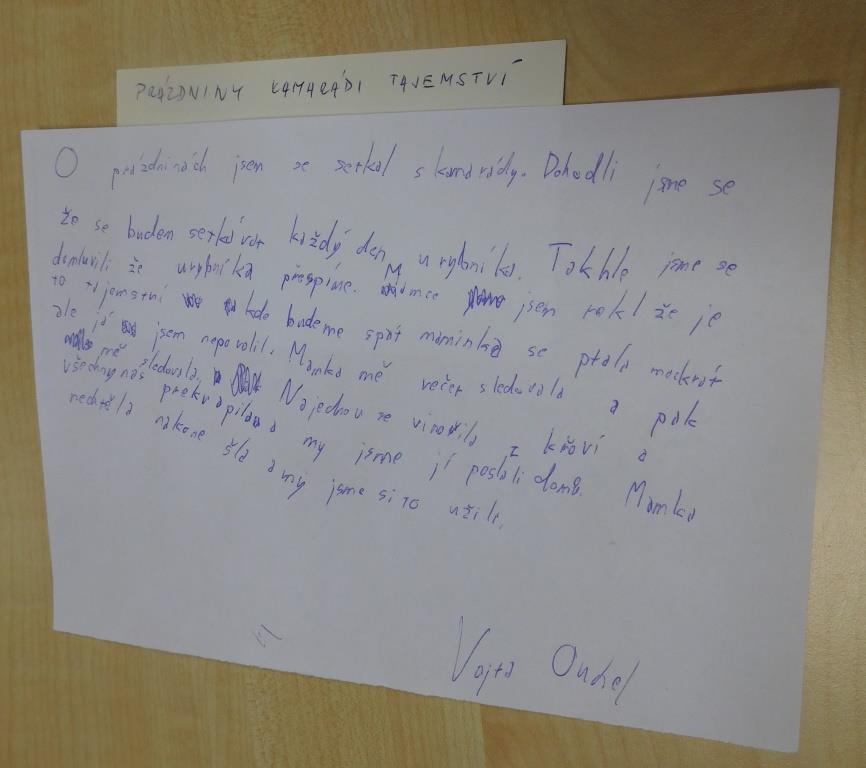 PRÁZDNINY KAMARÁDI TAJEMSTVÍ
O prázdninách jsem se setkal s kamarády. Dohodli jsme se
že se budem setkávat každý den u rybníka. Takhle jsme se
domluvili že u rybníka přespíme. Mamce jsem řekl že je
to tajemství kde budeme spát maminka se ptala mockrát
ale já jsem nepovolil. Mamka mě večer sledovala a pak
mě sledovala, Najednou se vinořila z křoví a
všechny nás překvapila a my jsme jí poslali domů. Mamka
nechtěla nakone šla a my jsme si to užili.
Vojta Ondřej